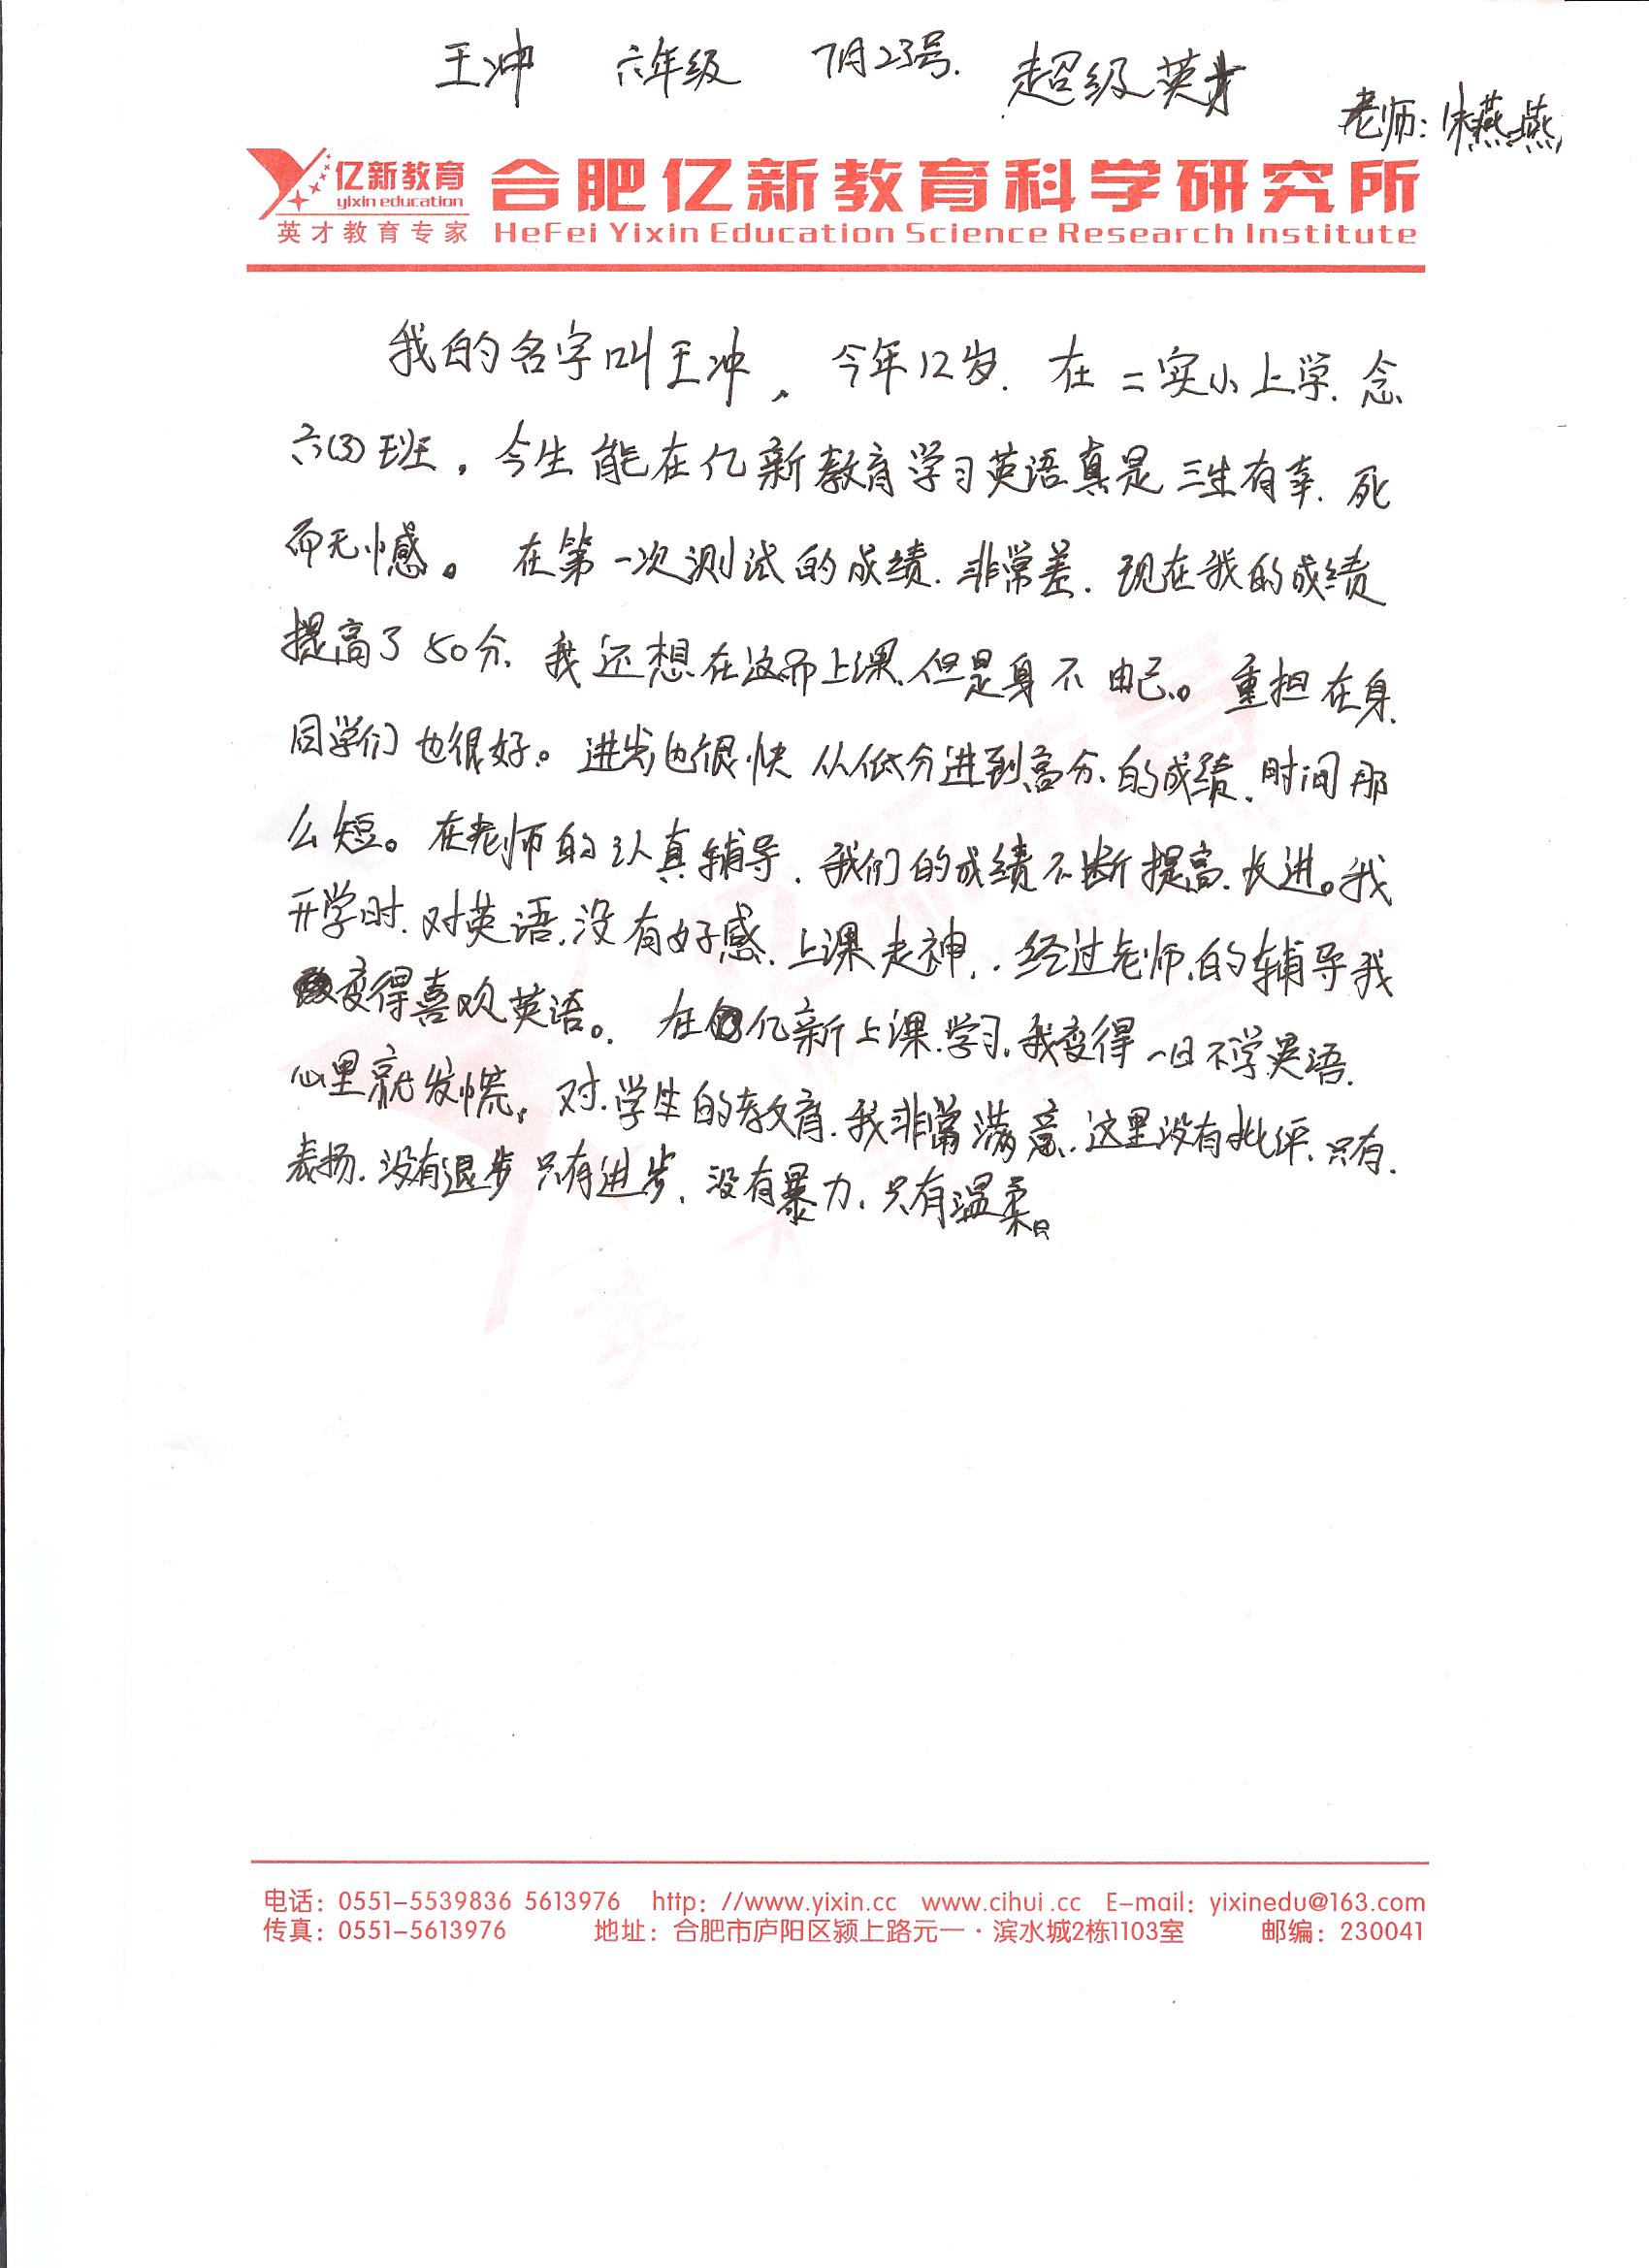 王冲 六年级 7月23号. 超级英才
老师：朱燕燕
亿新教育
yixin education
英才教育专家
合肥亿新教育科学研究所
HeFei Yixin Education Science Research Institute
我的名字叫王冲，今年12岁.在二实小上学.念
六(3)班。今生能在亿新教育学习英语真是三生有幸.死
而无憾。在第一次测试的成绩.非常差.现在我的成绩
提高了50分.我还想在这而上课.但是身不由己。重担在身.
同学们也很好。进步也很快 从低分进到高分.的成绩.时间那
么短。在老师的认真辅导.我们的成绩不断提高.长进。我
开学时.对英语.没有好感.上课走神..经过老师.的辅导我
变得喜欢英语。.在亿新上课.学习.我变得一日不学英语.
心里就发慌。对.学生的教育.我非常满意.这里没有批评.只有.
表扬.没有退步 只有进步.没有暴力.只有温柔。
电话：0551-5539836 5613976 http：//www.yixin.cc www.cihui.cc E-mail：yixinedu@163.com
传真：0551-5613976 地址：合肥市庐阳区颍上路元一·滨水城2栋1103室 邮编：230041